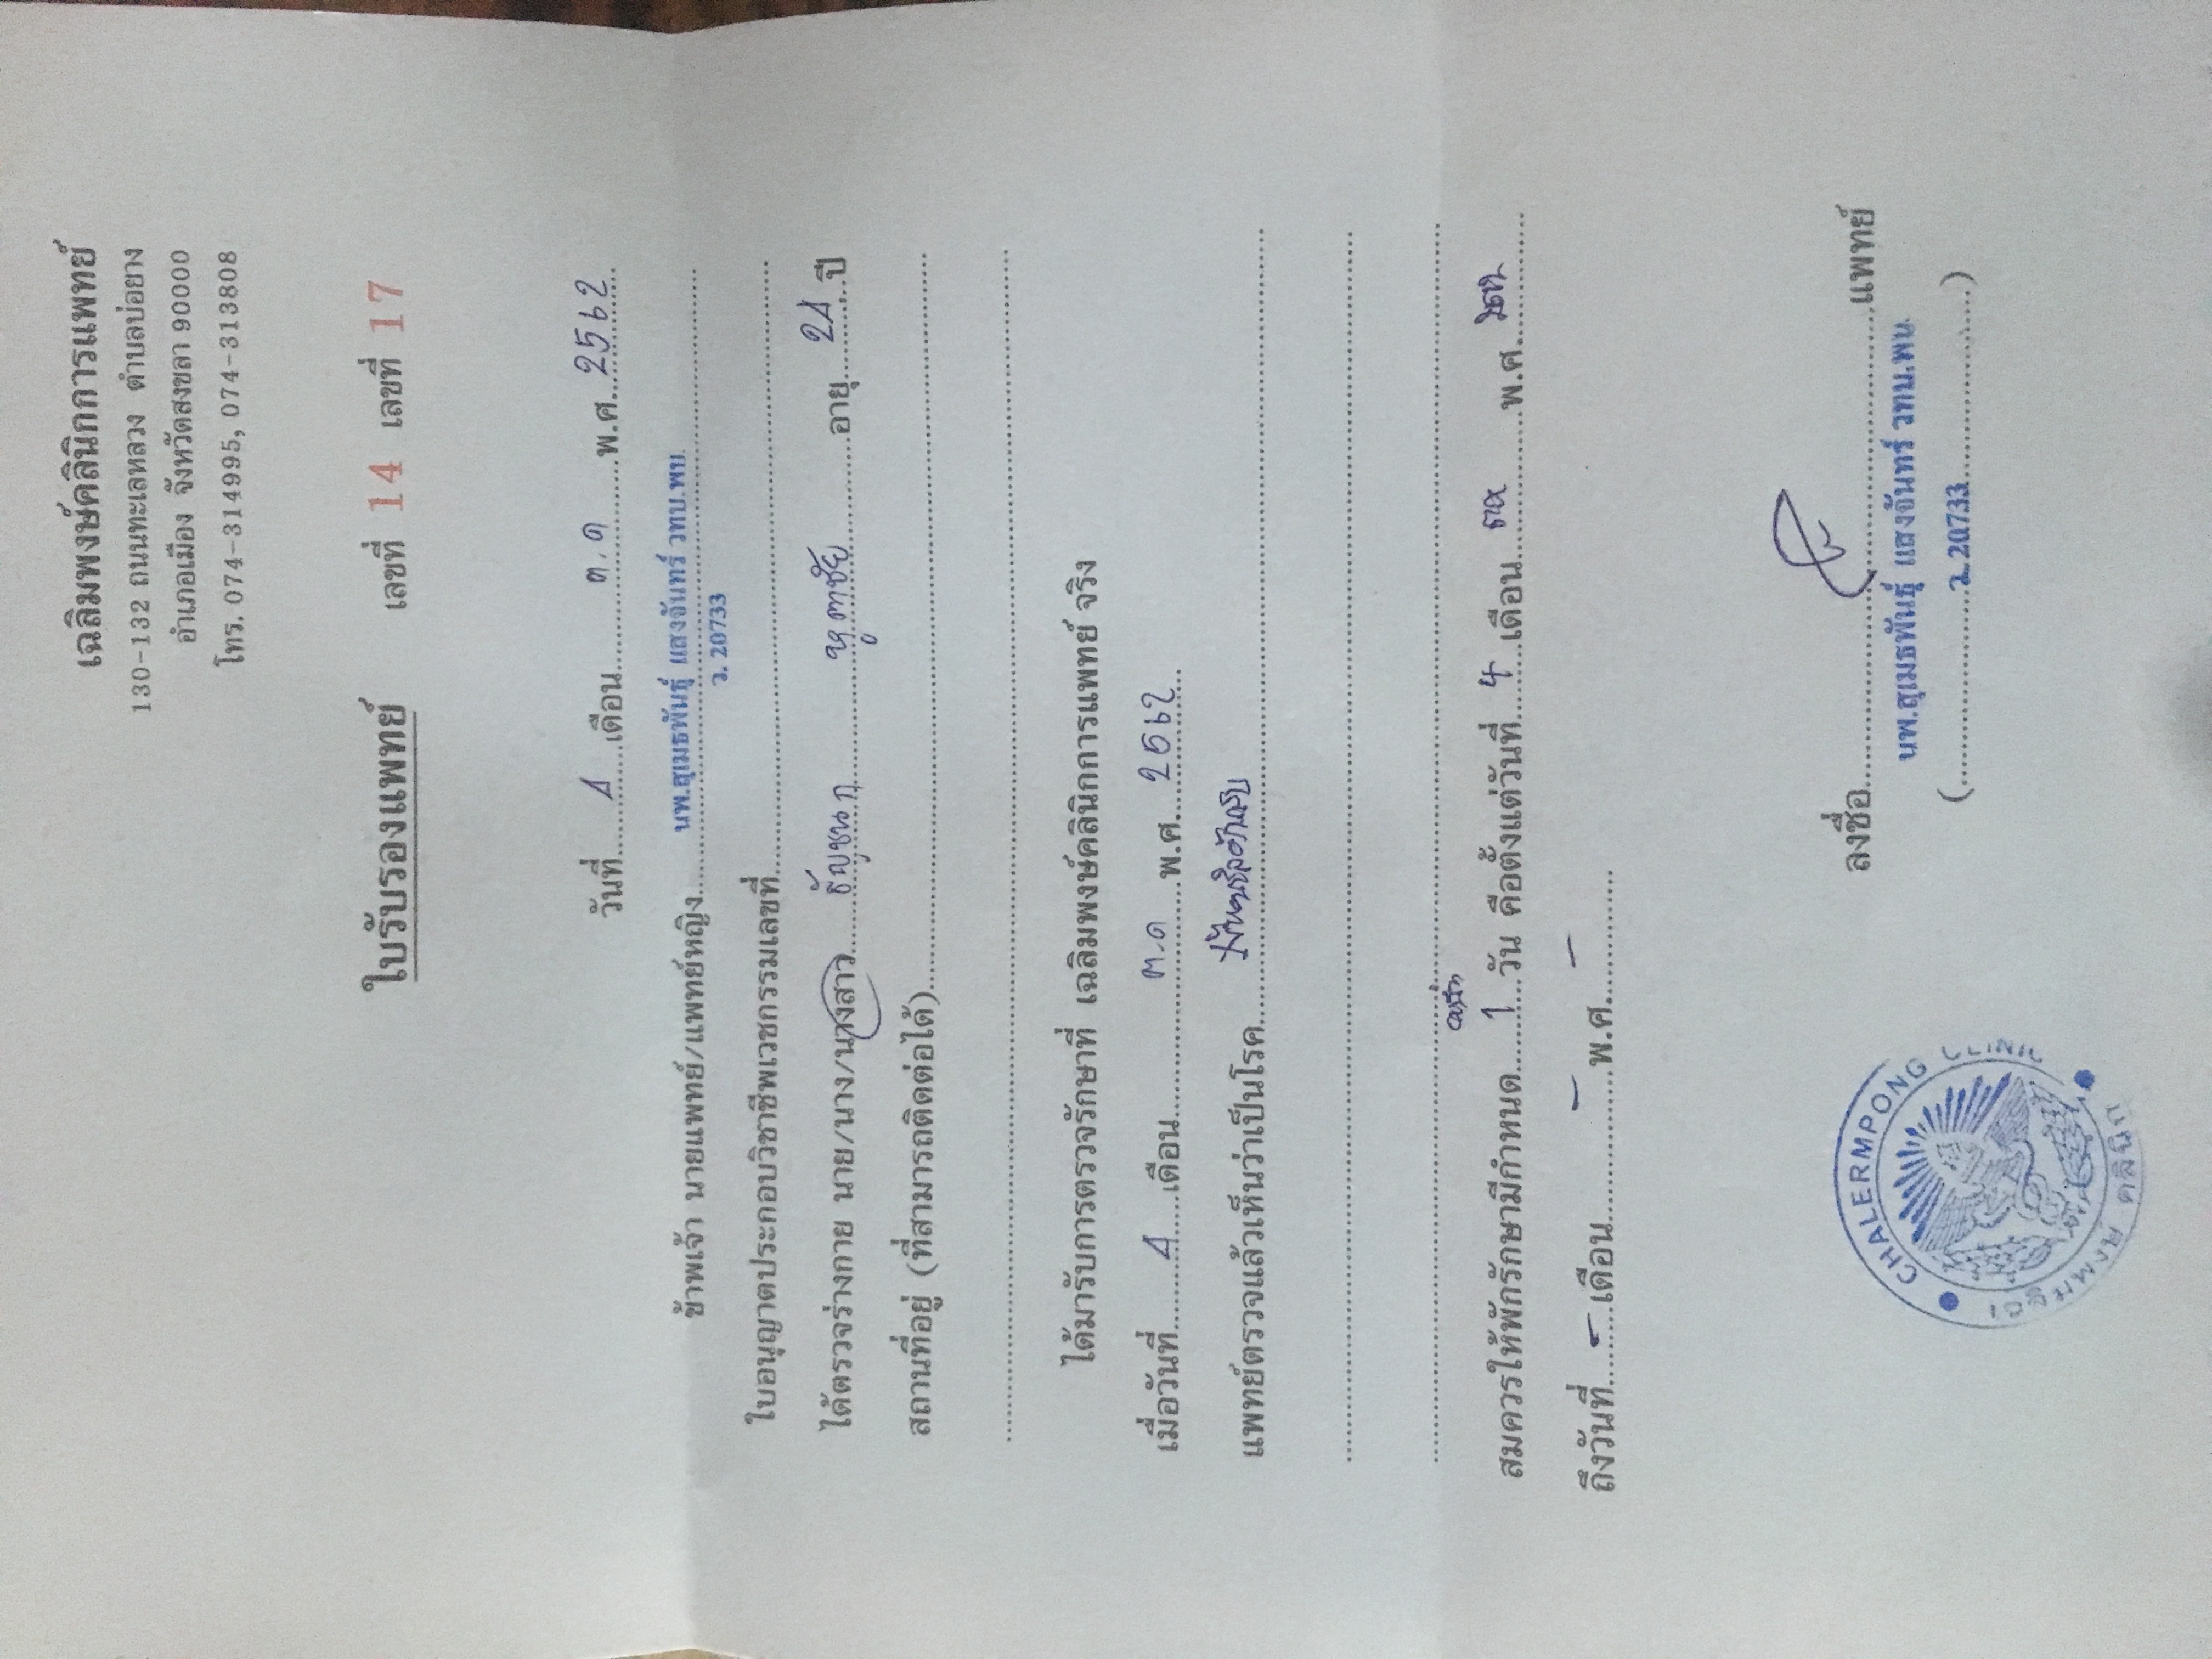 เฉลิมพงษ์คลินิกการแพทย์
130-132 ถนนทะเลหลวง ตำบลบ่อยาง
อำเภอเมือง จังหวัดสงขลา 90000
โทร. 074-314995, 074-313808
ใบรับรองแพทย์ เลขที่ 14 เลขที่ 17
วันที่ 4 เดือน ต.ค พ.ศ. 2562
ข้าพเจ้า นายแพทย์/แพทย์หญิง นพ.สุเมธพันธุ์ แสงจันทร์ วทบ.พบ.
ว. 20733
ใบอนุญาตประกอบวิชาชีพเวชกรรมเลขที่
ได้ตรวจร่างกาย นาย/นาง/นางสาว ธัญชนก หูตาชัย อายุ 24 ปี
สถานที่อยู่ (ที่สามารถติดต่อได้)
ได้มารับการตรวจรักษาที่ เฉลิมพงษ์คลินิกการแพทย์ จริง
เมื่อวันที่ 4 เดือน ต.ค พ.ศ. 2562
แพทย์ตรวจแล้วเห็นว่าเป็นโรค
สมควรให้พักรักษามีกำหนด 1 วัน คือตั้งแต่วันที่ 4 เดือน ตค พ.ศ. 2562
ถึงวันที่ - เดือน - พ.ศ. -
ลงชื่อ แพทย์
นพ.สุเมธพันธุ์ แสงจันทร์ วทบ.พบ.
( ว. 20733 )
CHALERMPONG CLINIC
เฉลิมพงษ์ คลินิก